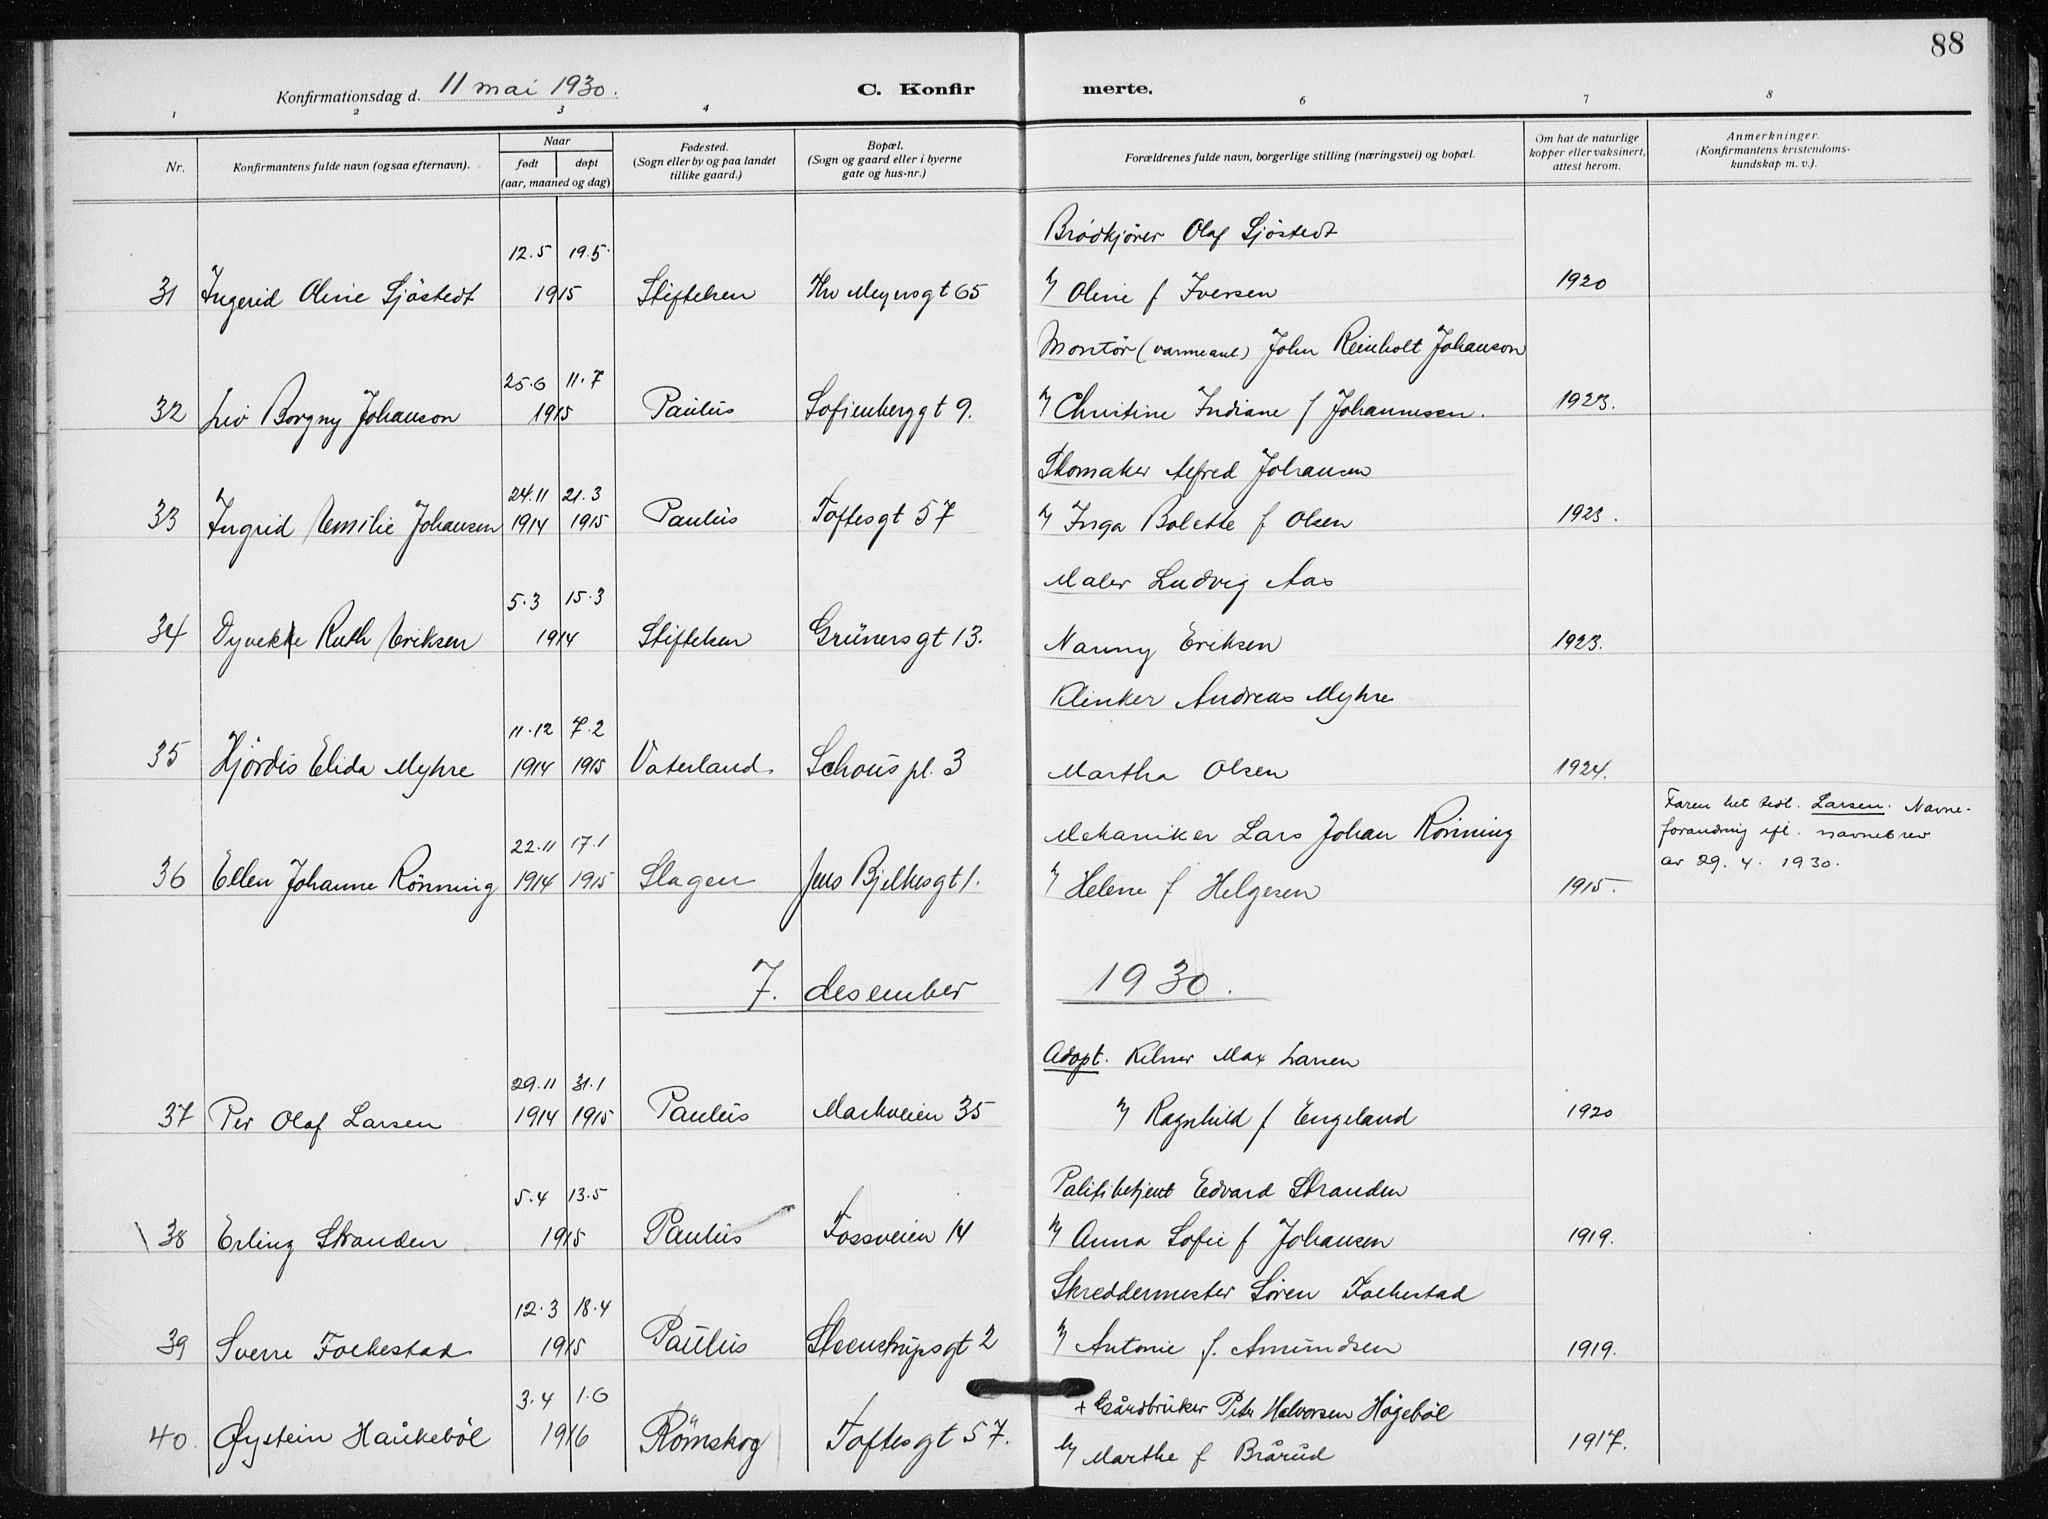 88
Konfirmationsdag d. 11 mai 1930. C. Konfirmerte.
1 2 3 4 6 7 8
Nr.
Konfirmantens fulde navn (ogsaa efternavn).
Naar
født døpt
(aar, maaned og dag)
Fødested.
(Sogn eller by og paa landet
tillike gaard.)
Bopæl.
(Sogn og gaard eller i byerne
gate og hus-nr.)
Forældrenes fulde navn, borgerlige stilling (næringsvei) og bopæl.
Om hat de naturlige
kopper eller vaksinert,
attest herom.
Anmerkninger.
(Konfirmantens kristendoms-
kundskap m. v.).
12.5 19.5 Brödkjörer Olaf Sjöstedt
31 Ingerid Oline Sjöstedt 1915 Stiftelsen Thv Meyersgt 65 Oline f Iversen 1920
25.6 11.7 Montör (varmeanl) John Reinholt Johanson
32 Liv Borgny Johanson 1915 Paulus Sofienberggt 9. Christine Indiane f Johannesen. 1923.
24.11 21.3 Skomaker Alfred Johansen
33 Ingrid Emilie Johansen 1914 1915 Paulus Toftesgt 57 Inga Bolette f Olsen 1923.
5.3 15.3 Maler Ludvig Aas
34 Dyvekke Ruth Eriksen 1914 Stiftelsen Grünersgt 13. Nanny Eriksen 1923.
11.12 7.2 Klinker Andreas Myhre
35 Hjördis Elida Myhre 1914 1915 Vaterland Schous pl. 3 Martha Olsen 1924.
22.11 17.1 Mekaniker Lars Johan Rönning
36 Ellen Johanne Rönning 1914 1915 Slagen Jens Bjelkesgt 1. Helene f Helgesen 1915.
Faren het tidl. Larsen. Navne-
forandring ifl. navnebrev
av 29. 4. 1930.
7. desember 1930.
29.11 31.1 Adopt. Kelner Max Larsen
37 Per Olaf Larsen 1914 1915 Paulus Markveien 35 Ragnhild f Engeland 1920
5.4 13.5 Politibetjent Edvard Stranden
38 Erling Stranden 1915 Paulus Fossveien 14 Anna Sofie f Johansen 1919.
12.3 18.4 Skreddermester Sören Folkestad
39 Sverre Folkestad 1915 Paulus Steenstrupsgt 2 Antonie f. Amundsen 1919.
3.4 1.6 + Gårdbruker Peter Halvorsen Högeböl
40. Øystein Haukeböl 1916 Römskog Toftesgt 57. Marthe f Brårud 1917.